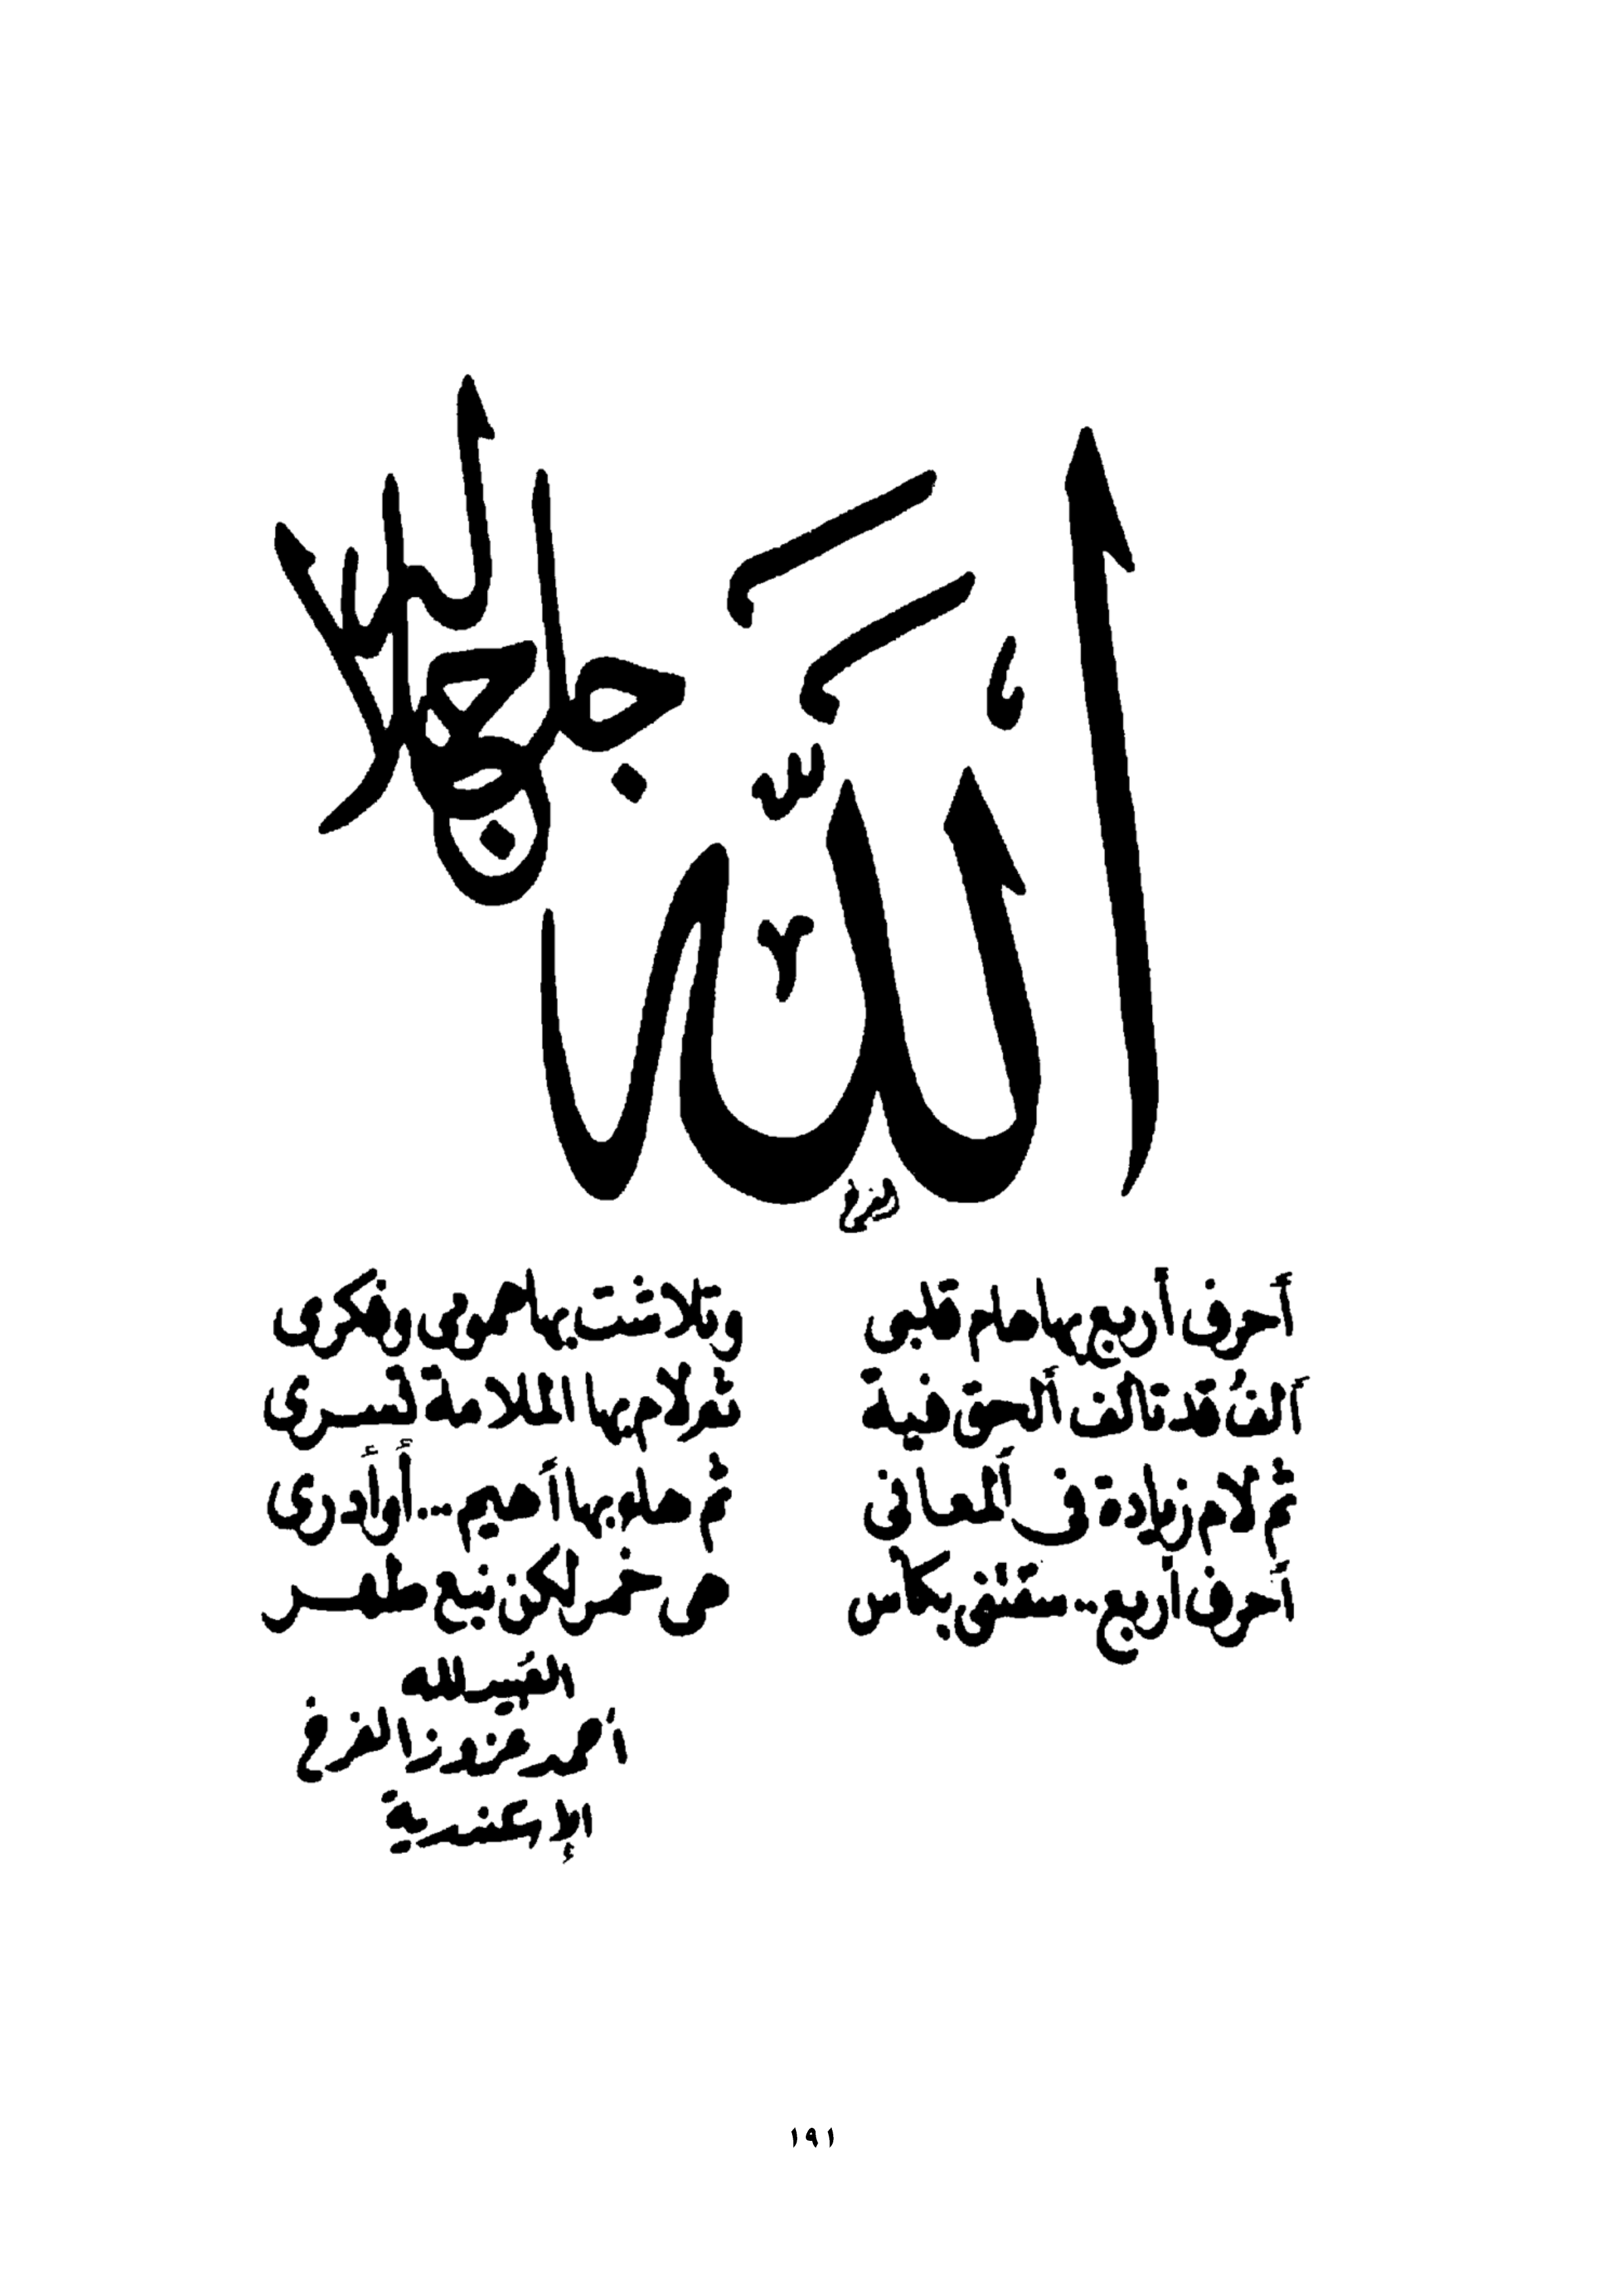 الله جل جلاله
أحرف أربع بها هام قلبى وتلاشت بها همومى وفكرى
ألفٌ قد تآلف الحق فيه ثم لام بها الملامة تسرى
ثم لام زيادة فى المعانى ثم بها أهيم .. أو أدرى
أحرف أربع .. بكأس خمر لكن نبع طهر
لله
أحمد
الإسكندرية
١٩١